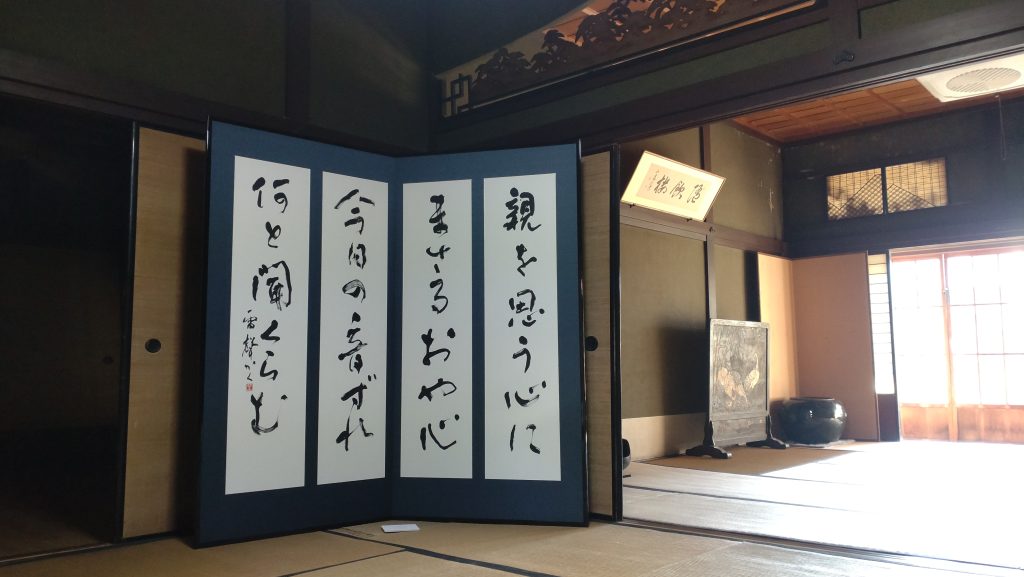 親を思う心に
まさるおや心
今日の音ずれ
何と聞くらむ